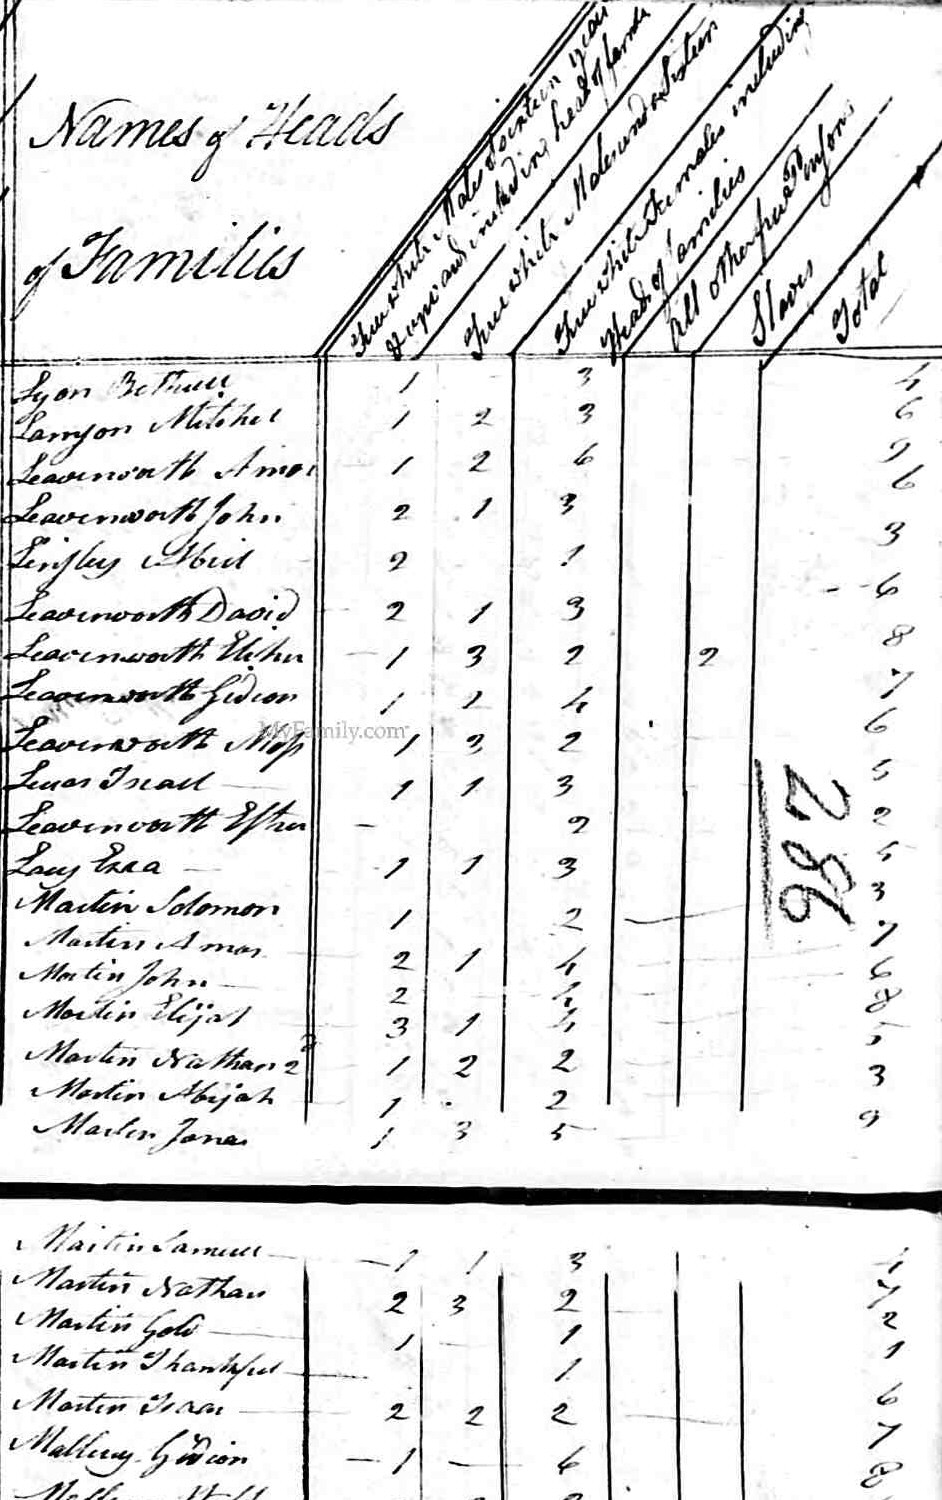 Names of Heads
of Families
Free white Males of sixteen years
& upward including heads of famile
Free white Males under Sixteen
Free white Females including
Heads of families
All other free persons
Slaves
Total
Lyon Bethuel 1 3 4
Lamson Mitchel 1 2 3 6
Leavenworth Amos 1 2 6 9
Leavenworth John 2 1 3 6
Linsley Abiel 2 1 3
Leavenworth David 2 1 3 6
Leavenworth Elihu 1 3 2 2 8
Leavenworth Gideon 1 2 4 7
Leavenworth 1 3 2 6
Lucas Israel 1 1 3 5
Leavenworth Esther - 2 2
Lacy Ezra 1 1 3 5
Martin Solomon 1 2 3
Martin Amos 2 1 4 7
Martin John 2 4 6
Martin Elijah 3 1 4 8
Martin Nathan 2d 1 2 2 5
Martin Abijah 1 2 3
Martin Jonas 1 3 5 9
286
MyFamily.com
Martin Samuel 1 1 3
Martin Nathan 2 3 2 7
Martin Gold 1 - 1 2
Martin Thankful 1 1
Martin Isaac 2 2 2 6
Mallery Gideon - 1 - 6 7
8